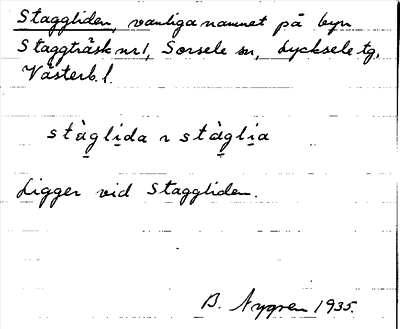 Staggliden, vanliga namnet på byn
Staggträsk nr 1, Sorsele sn, Lycksele tg,
Västerb. l.
stàglida ~ stàglia
Ligger vid Staggliden.
B. Nygren 1935.